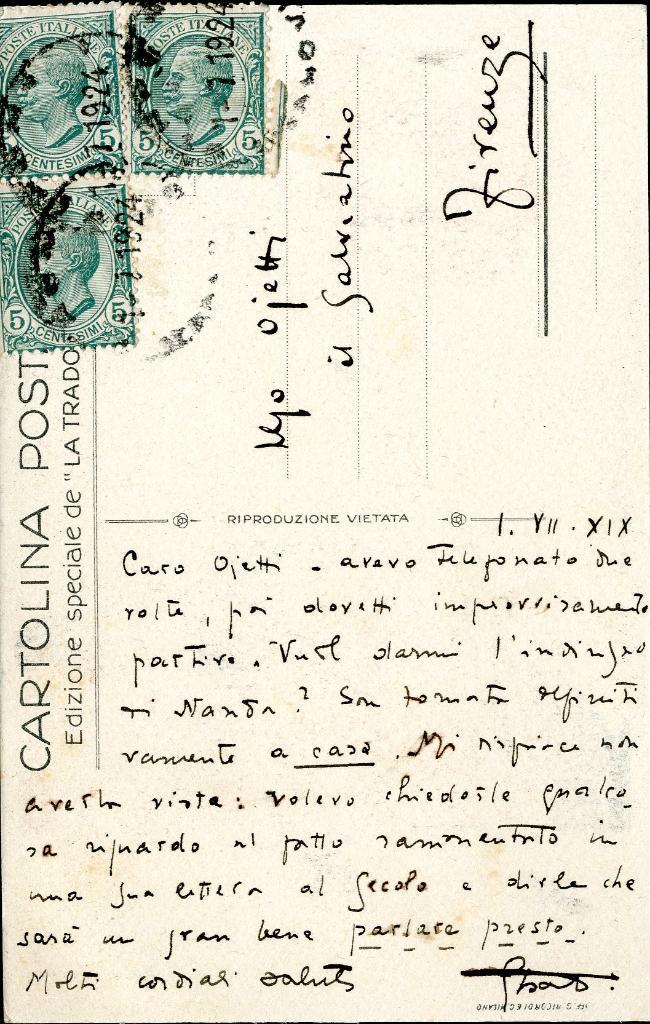 POSTE ITALIANE
5 CENTESIMI 5
1924
POSTE ITALIANE
5 CENTESIMI 5
1-7 1924
POSTE ITALIANE
5 CENTESIMI 5
1924
CARTOLINA POST
Edizione speciale de "LA TRADO
Ugo Ojetti
il Salviatino
Firenze
RIPRODUZIONE VIETATA
1. VII. XIX
Caro Ojetti - avevo telefonato due
volte, poi dovetti improvvisamente
partire. Vuol darmi l'indirizzo
di Nanda? Son tornata definiti
vamente a casa. Mi dispiace non
averla vista: volevo chiederle qualco
sa riguardo al fatto rammentato in
una sua lettera al Secolo e dirle che
sarà un gran bene parlare presto.
Molti cordiali saluti
IFF. G. RICORDI E C. MILANO